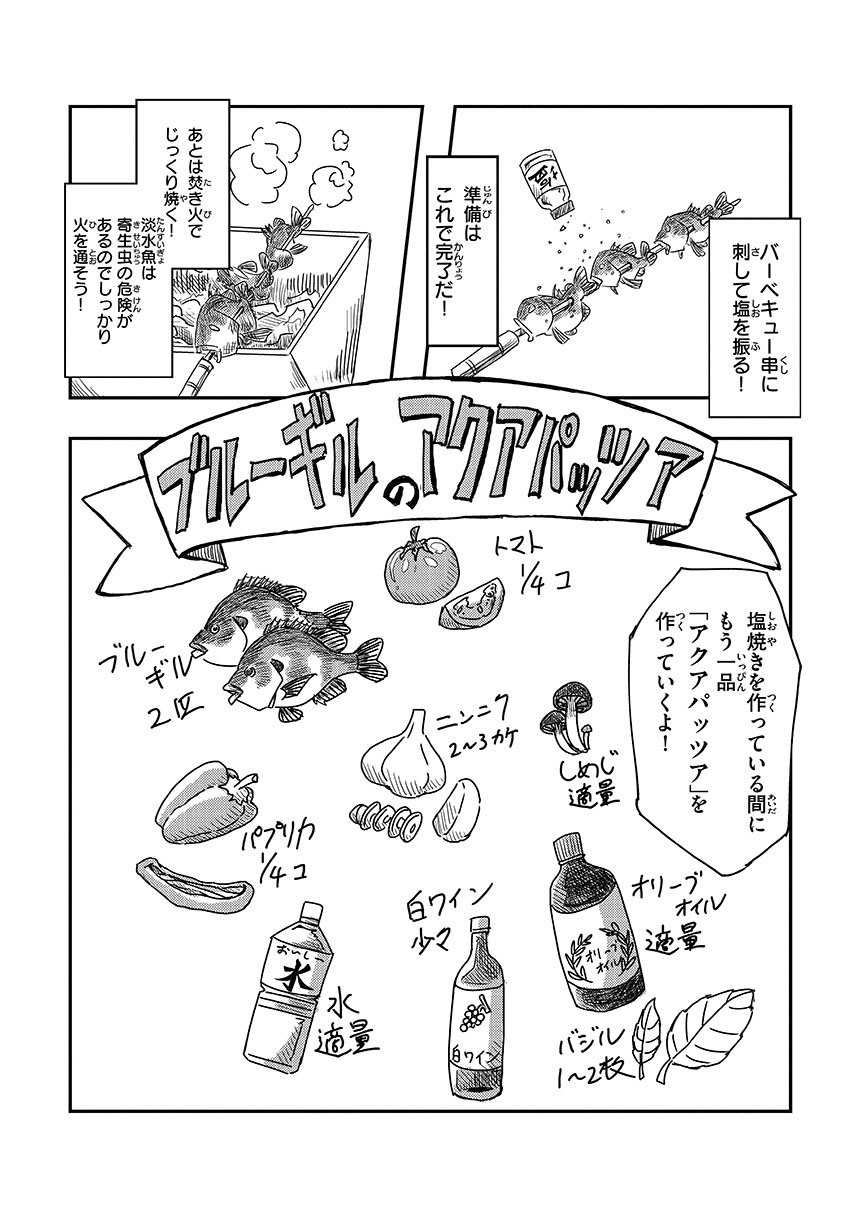 バーベキュー串に
刺して塩を振る！
塩
準備は
これで完了だ！
あとは焚き火で
じっくり焼く！
淡水魚は
寄生虫の危険が
あるのでしっかり
火を通そう！
ブルーギルのアクアパッツァ
塩焼きを作っている間に
もう一品
「アクアパッツア」を
作っていくよ！
トマト
1/4コ
ブルー
ギル
2匹
ニンニク
2〜3カケ
しめじ
適量
パプリカ
1/4コ
オリーブ
オイル
適量
オリーブ
オイル
白ワイン
少々
白ワイン
おいしー
水
水
適量
バジル
1〜2枚